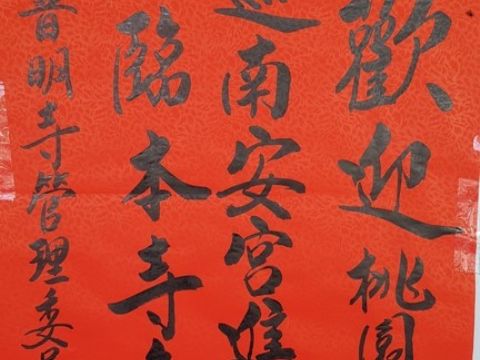 歡迎桃園
南安宮進
臨本寺
普明寺管理委員